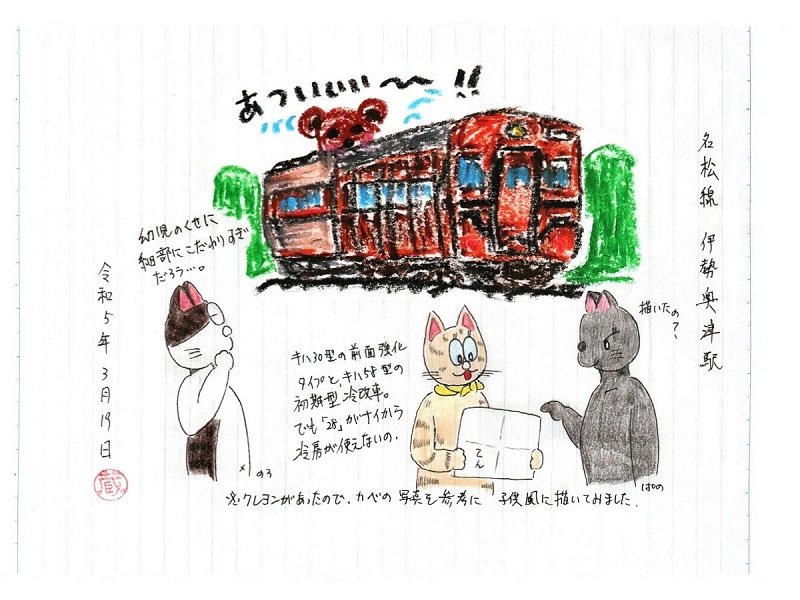 あついいいい〜!!
名松線 伊勢奥津駅
描いたの?
幼児のくせに
細部にこだわりすぎ
だろう…。
キハ30型の前面強化
タイプと、キハ58型の
初期型冷改車。
でも「28」がナイから
冷房が使えないの。
てん
のろ
ぱの
令和5年3月19日
蔵
※クレヨンがあったので、カベの写真を参考に 子供風に描いてみました。